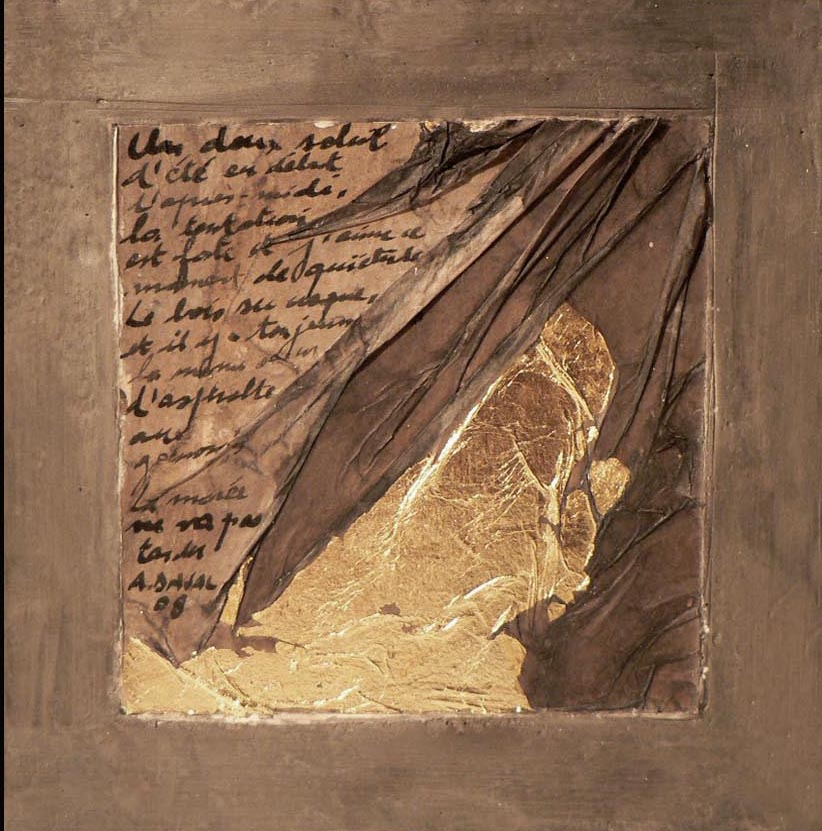 Un doux soleil
d'été en début
d'après-midi,
la tentation
est forte et j'aime ce
moment de quiétude
Le bois su
et il y a toujours
la même
d'asphalte
aux
genoux
La marée
ne va pas
tarder
A.DAVAL
08